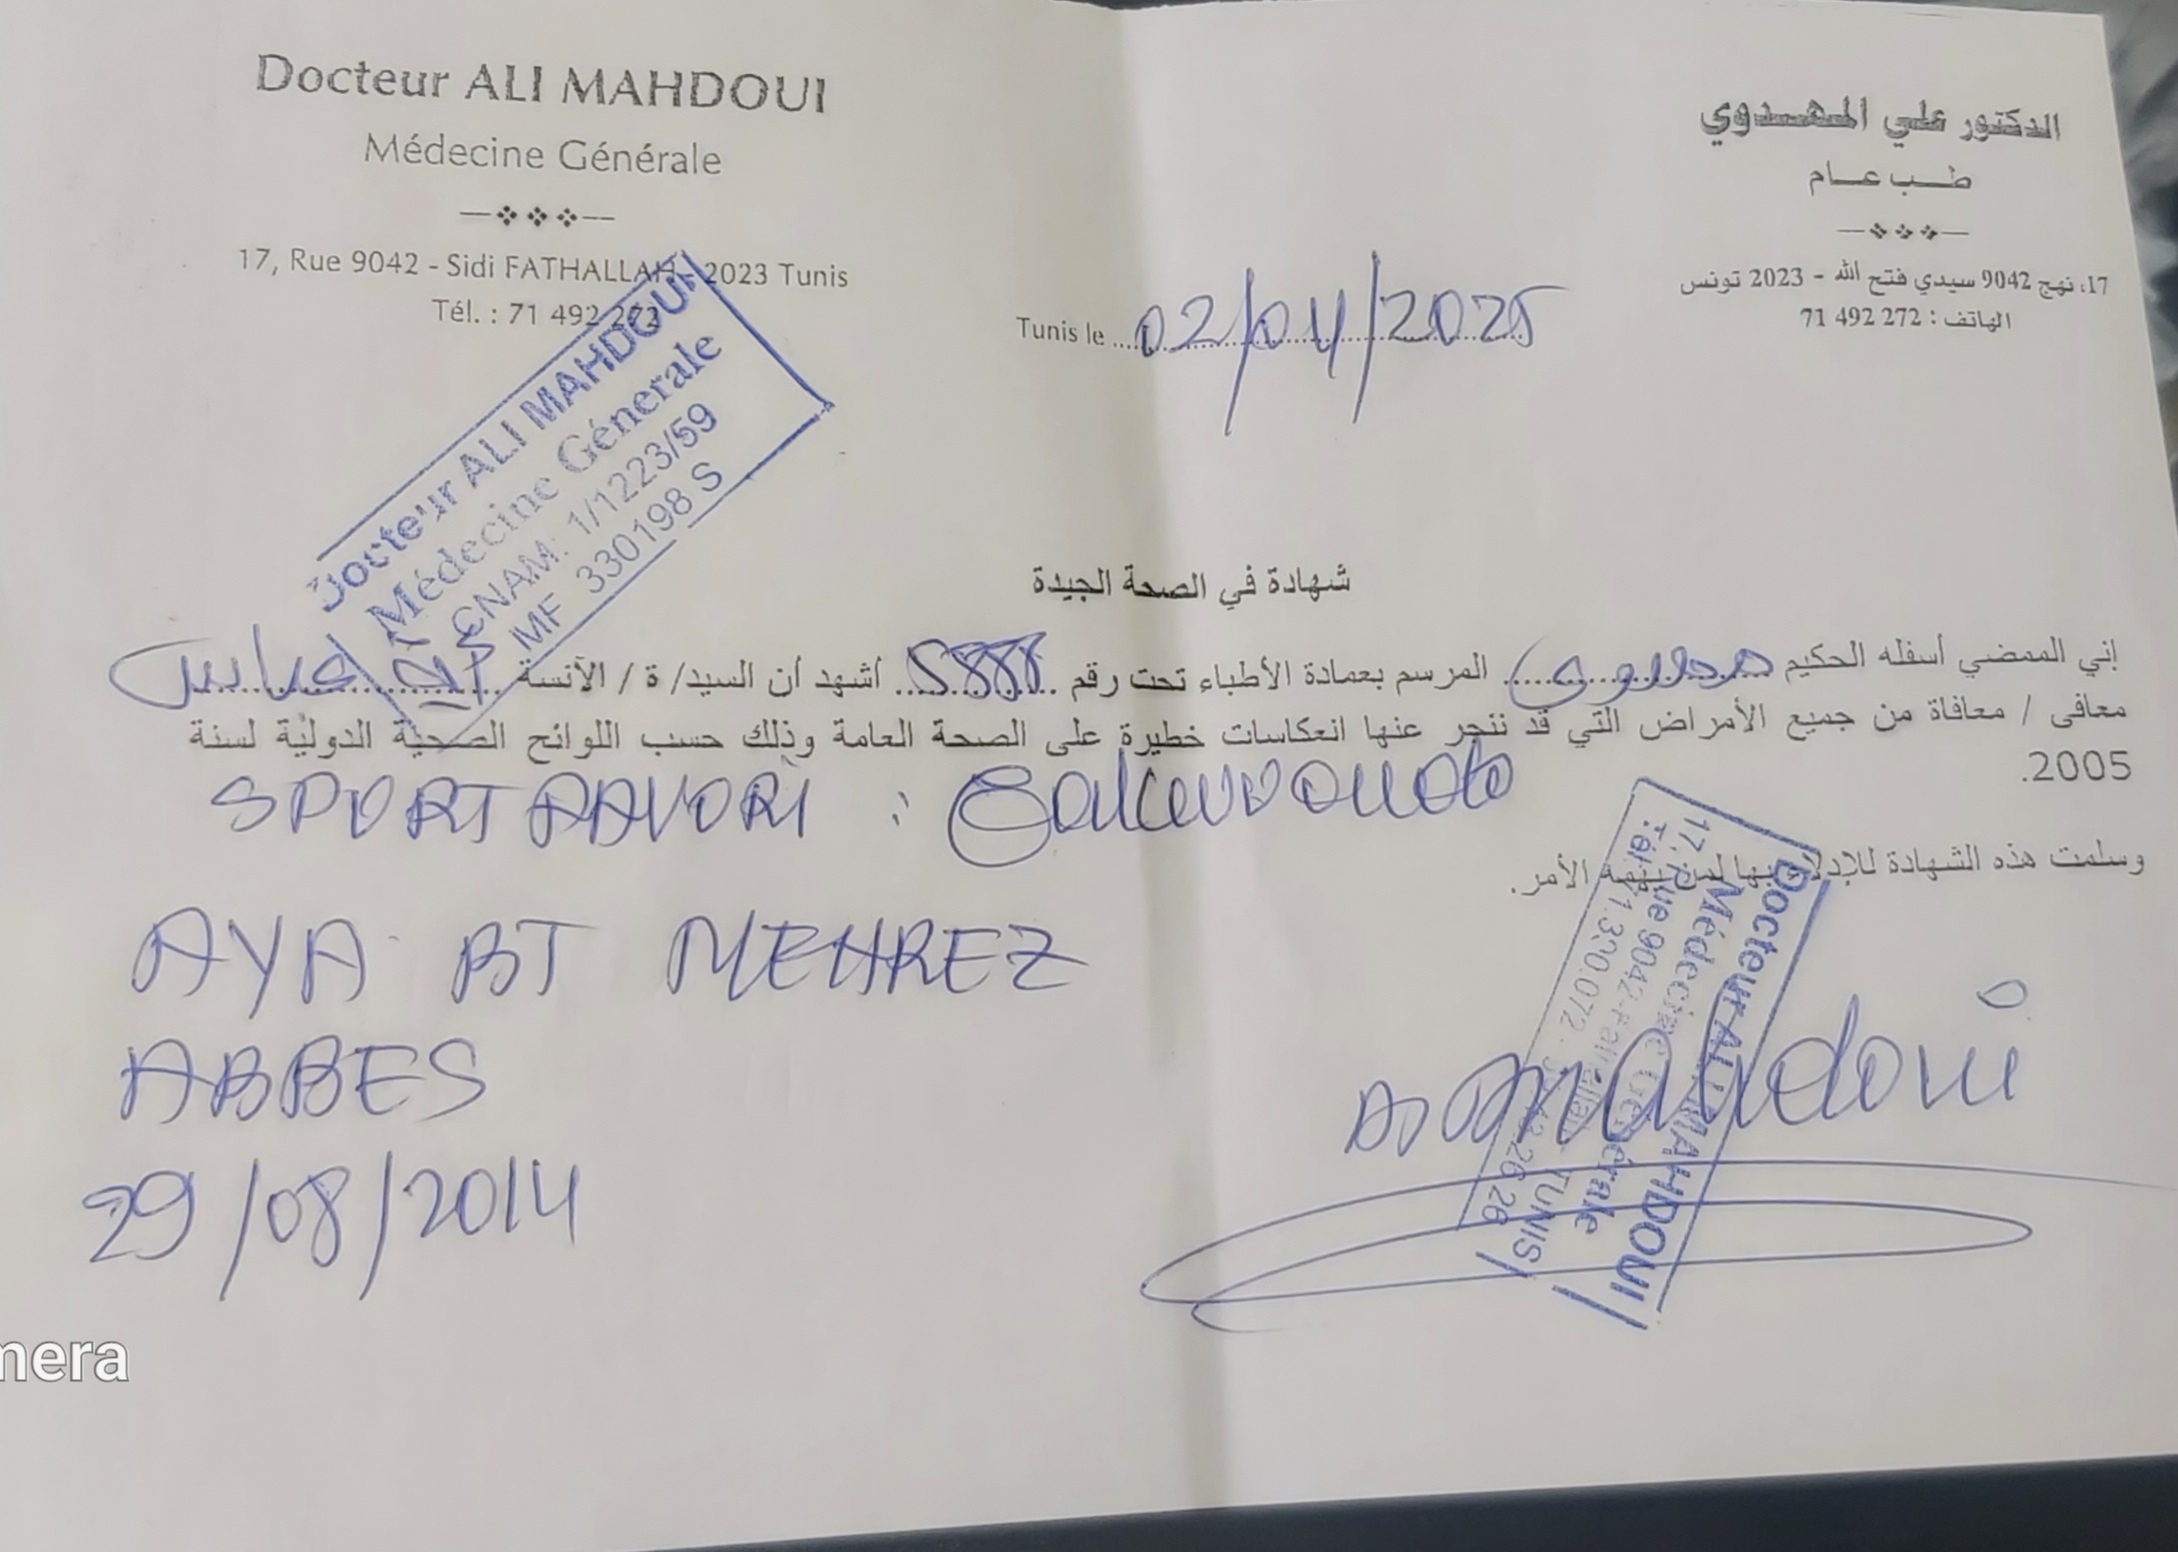 Docteur ALI MAHDOUI
Médecine Générale
17, Rue 9042 - Sidi FATHALLAH - 2023 Tunis
Tél. : 71 492 272
الدكتور علي المهدوي
طب عام
17، نهج 9042 سيدي فتح الله - 2023 تونس
الهاتف : 272 492 71
Tunis le 02/04/2025
Docteur ALI MAHDOUI
Médecine Génerale
CNAM: 1/1223/59
MF 330198 S
شهادة في الصحة الجيدة
إني الممضي أسفله الحكيم مهدوي المرسم بعمادة الأطباء تحت رقم أشهد أن السيد/ ة / الآنسة آية عباس
معافى / معافاة من جميع الأمراض التي قد ننجر عنها انعكاسات خطيرة على الصحة العامة وذلك حسب اللوائح الصحية الدولية لسنة
2005.
SPORT
وسلمت هذه الشهادة للإدلاء بها لمن يهمه الأمر.
AYA BT MEHREZ
ABBES
29/08/2014
Dr mahdoui
Docteur ALI MAHDOUI
Médecine Générale
17, Rue 9042-Fathallah TUNIS
mera